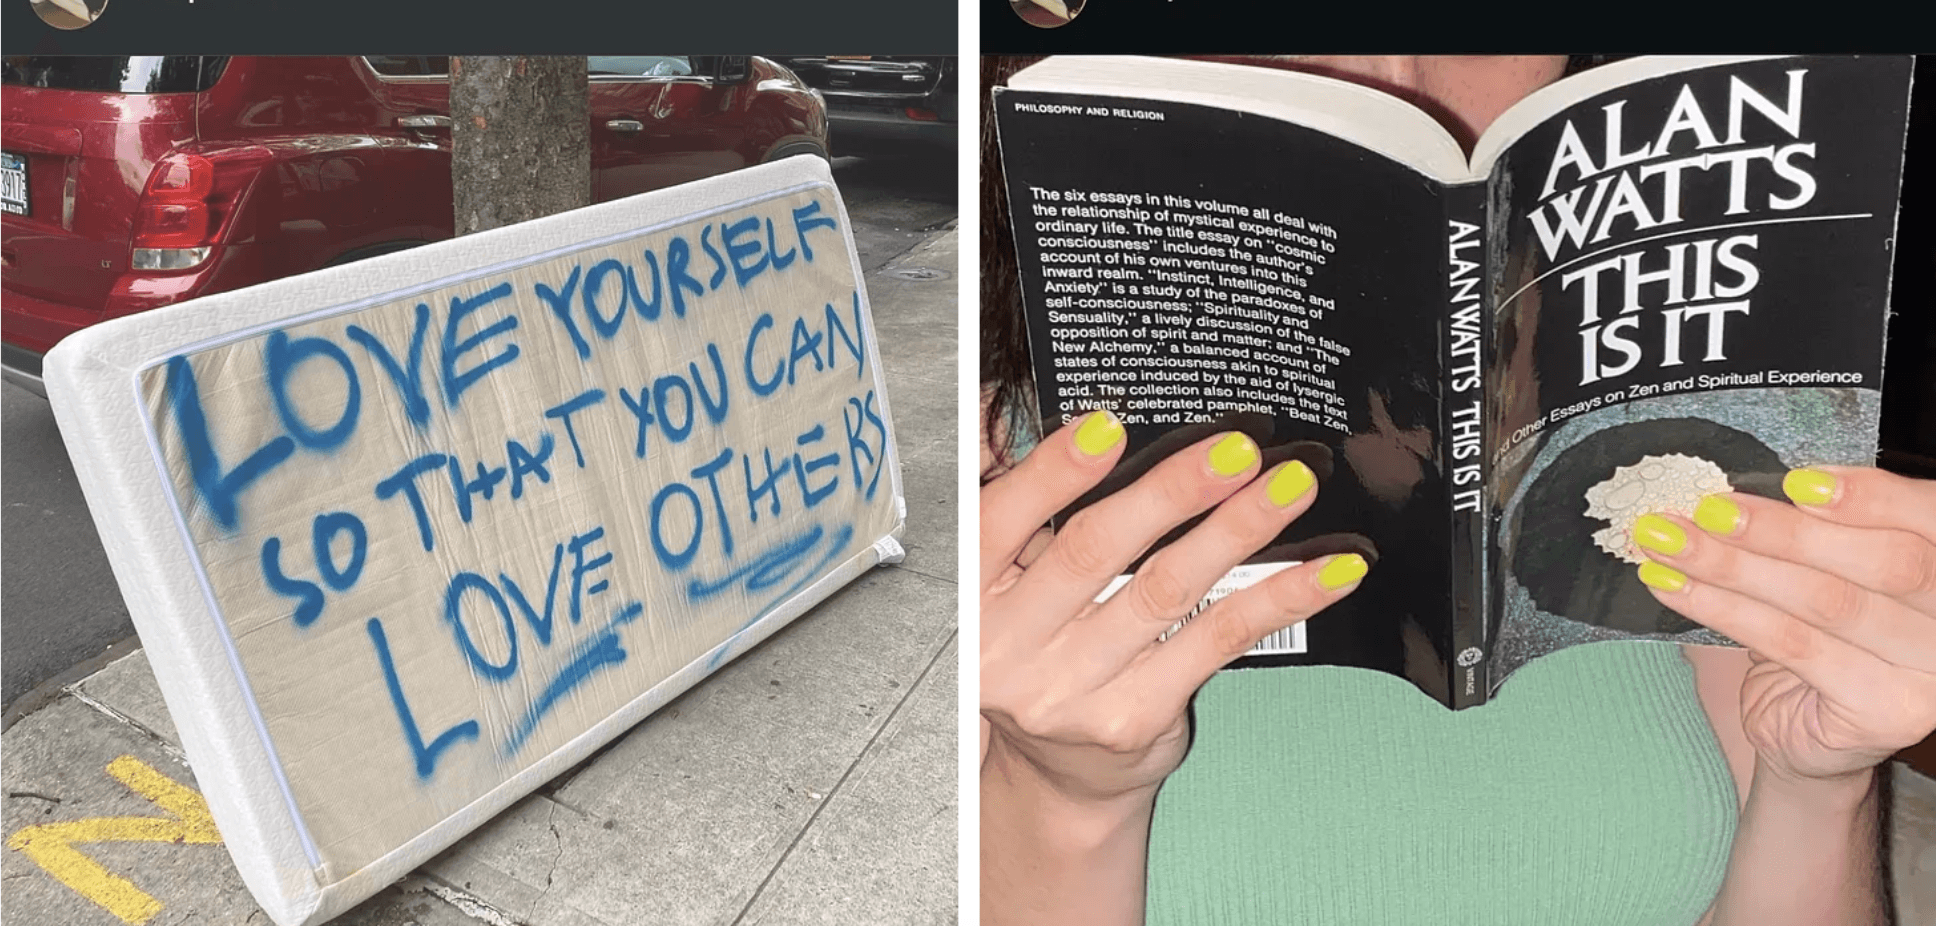 3917
LT
LOVE YOURSELF
SO THAT YOU CAN
LOVE OTHERS
PHILOSOPHY AND RELIGION
The six essays in this volume all deal with
the relationship of mystical experience to
ordinary life. The title essay on "cosmic
consciousness" includes the author's
account of his own ventures into this
inward realm. "Instinct, Intelligence, and
Anxiety" is a study of the paradoxes of
self-consciousness; "Spirituality and
Sensuality," a lively discussion of the false
opposition of spirit and matter; and "The
New Alchemy," a balanced account of
states of consciousness akin to spiritual
experience induced by the aid of lysergic
acid. The collection also includes the text
of Watts' celebrated pamphlet, "Beat Zen,
Zen, and Zen."
ALAN WATTS THIS IS IT
VINTAGE
ALAN
WATTS
THIS
IS IT
and Other Essays on Zen and Spiritual Experience